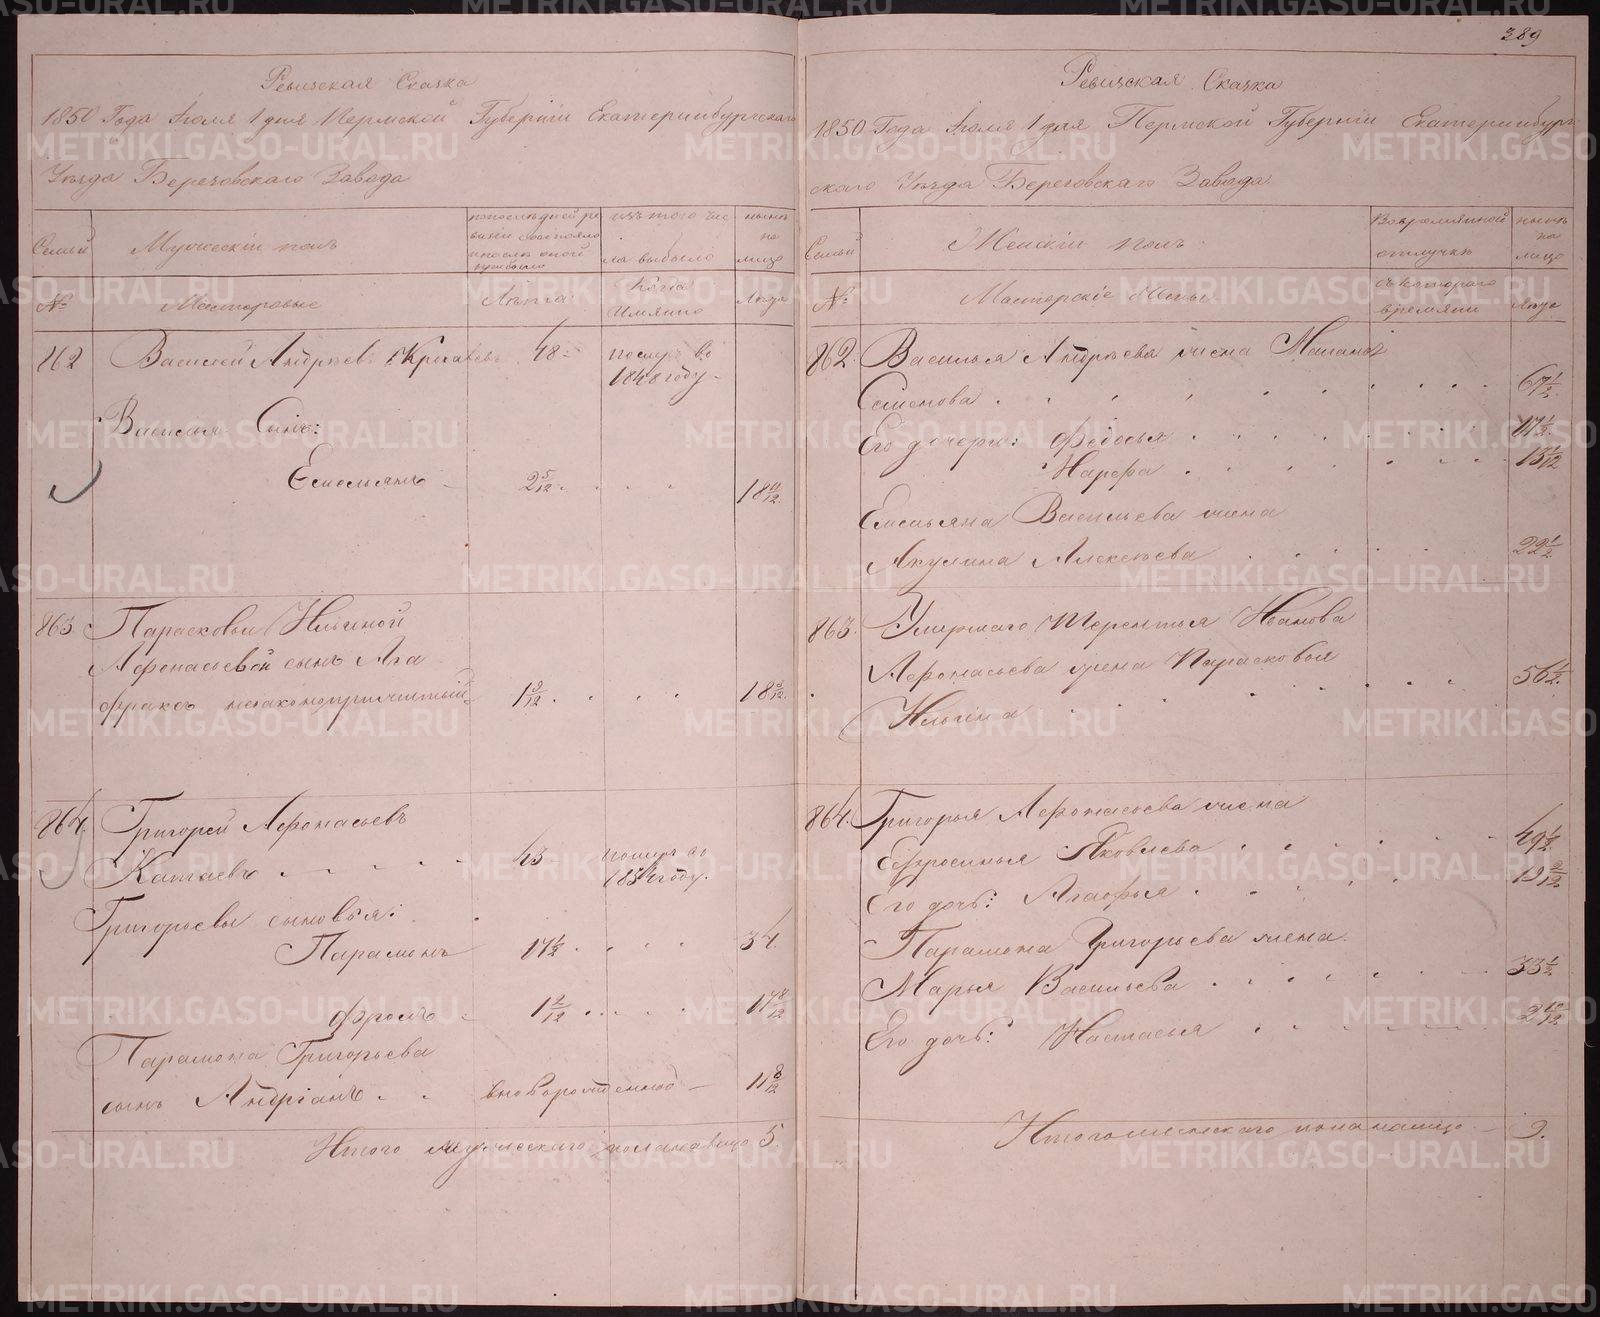 Ревизская Сказка
1850 Года Июля 1 дня Пермской Губернiи Екатеринбургскаго
Уезда Березовскаго Завода
Семьи
Мужескiй полъ
изъ того чис
ла выбыло
ныне
на
лицо
№
Мастеровые
Лѣта
Когда
Имянно
Лѣта
862
Василей Андрѣевъ
48
померъ въ
1848 году
Василья Сынъ:
Емельянъ
2 5/12
18 11/12
863
Парасковьи Ильиной
Афонасьевой сынъ Ага
фракъ незаконоприжитый
1 9/12
18 3/12
864.
Григорей Афонасьевъ
Катаевъ
43
померъ во
году.
Григорьевы сыновья:
Парамонъ
17 1/2
34.
Фролъ
1 2/12
17 8/12
Парамона Григорьева
сынъ Андрiанъ
вноворожденной
11 8/12
Итого мужескаго пола налицо 5.
389
Ревизская Сказка
1850 Года Июля 1 дня Пермской Губернiи Екатеринбург
скаго Уезда Березовскаго Завода
Семьи
Женскiй полъ
Во времянной
отлучкѣ
ныне
на
лицо
№
Мастерскiе Жены
съ котораго
времяни
Лѣта
862.
Василья Андрѣева жена Маланья
Семенова
67 1/2
Его дочери: Федосья
17 1/2
13 1/12
Емельяна Васильева жена
Акулина Алексеева
22 1/2
863.
Умершаго Терентья Иванова
Афонасьева жена Парасковья
Ильина
56 1/2
864.
Григорья Афонасьева жена
Ефросинья Яковлева
49 1/2
Его дочь: Агафья
Парамона Григорьева жена
Марья Васильева
33 1/2
Его дочь: Настасья
2 10/12
Итого женскаго пола налицо 9.
METRIKI.GASO-URAL.RU